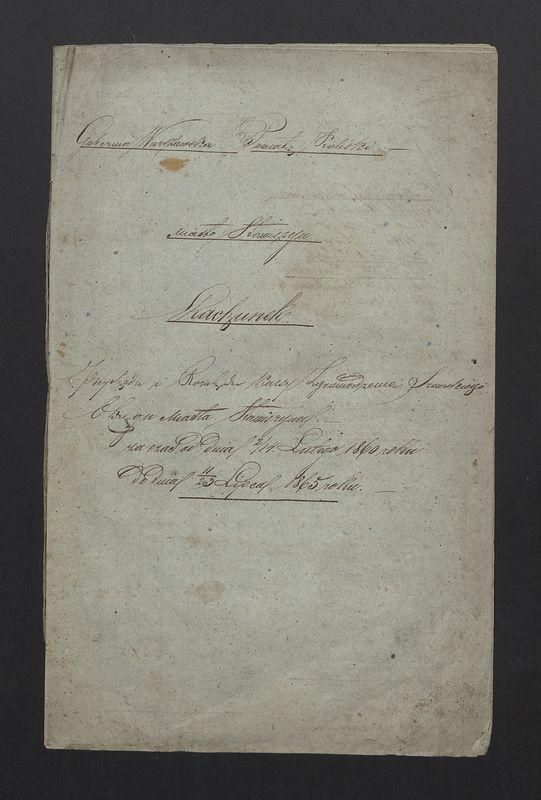 Gubernia Warszawska Powiat Kaliski
Miasto Stawiszyn
Rachunek
z Przychodu i Rozchodu Kassy Zgromadzenia Szewckiego
w Miasta Stawiszyna
za czas od dnia 2/14 Lutego 1860 roku
do dnia 11/23 Lipca 1865 roku.